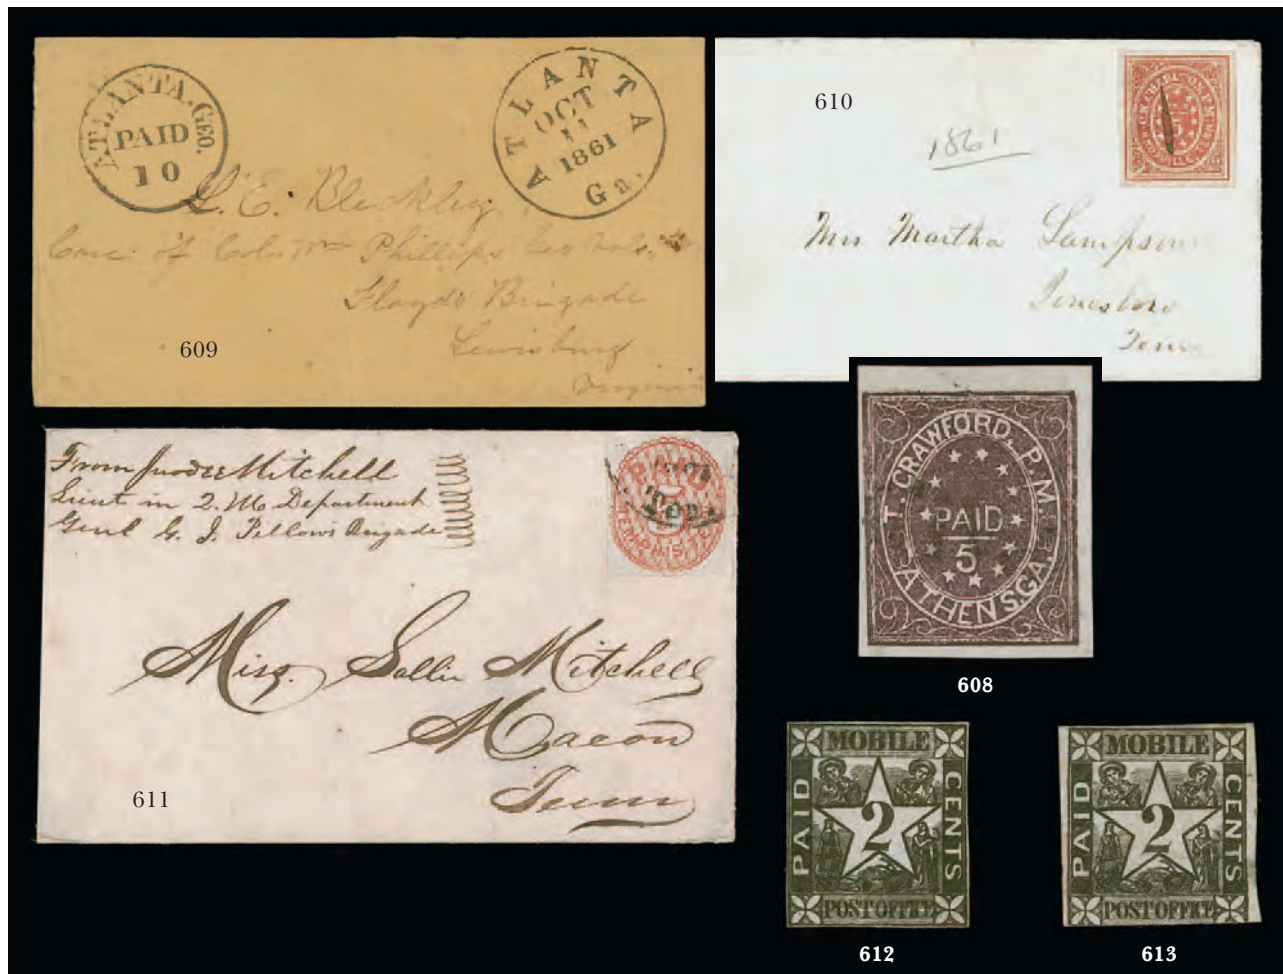 ATLANTA, GEO.
PAID
10
ATLANTA
OCT
11
1861
Ga.
L. E. Bleckley
Care of Col. Wm Phillips Geo Vols.
Floyds Brigade
Lewisburg
Virginia
609
610
1861
5
Mrs Martha Sampson
Jonesboro
Tenn
From Mitchell
Lieut in Q. M Department
Genl G. J. Pillows Brigade
PAID
5
MEMPHIS, TEN.
Ten.
Miss. Sallie Mitchell
Macon
Tenn
611
T. CRAWFORD, P.M.
PAID
5
ATHENS, GA.
608
MOBILE
PAID
2
CENTS
POST OFFICE
612
MOBILE
PAID
2
CENTS
POST OFFICE
613